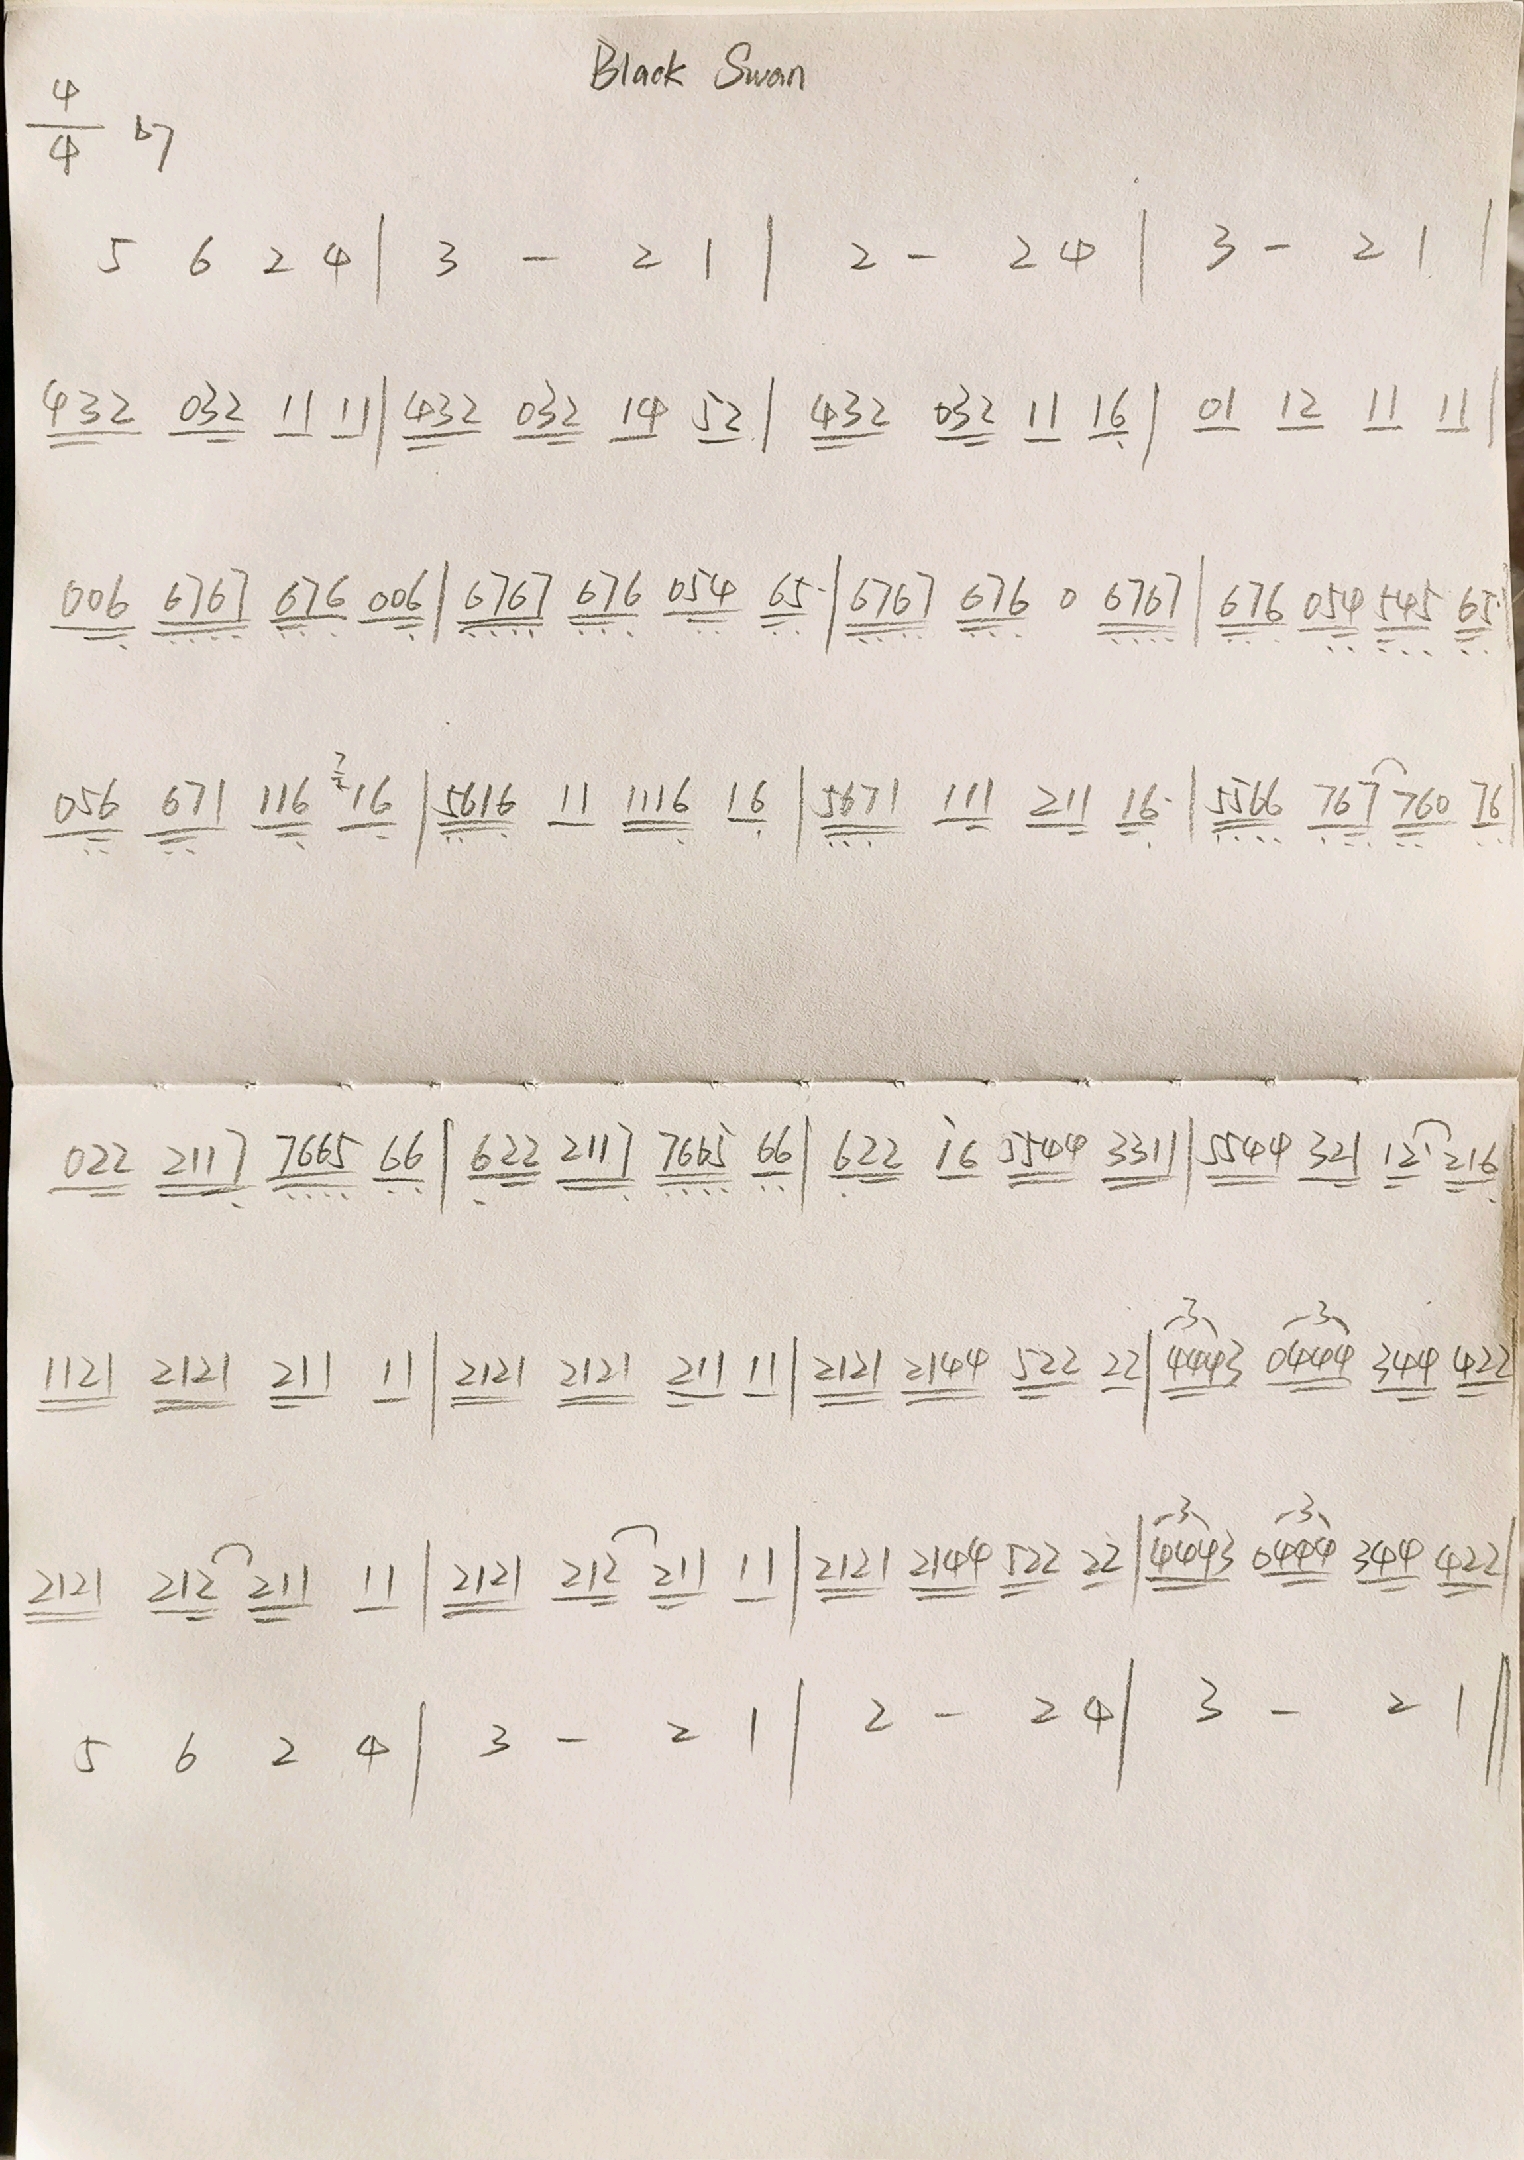 Black Swan
4/4 b7
5 6 2 4 | 3 - 2 1 | 2 - 2 4 | 3 - 2 1 |
432 032 11 11 | 432 032 14 52 | 432 032 11 16 | 01 12 11 11 |
006 6767 676 006 | 6767 676 054 65· | 6767 676 0 6767 | 676 054 545 65· |
056 671 116 16 | 5616 11 1116 16 | 5671 111 211 16· | 5566 767 760 76 |
022 2117 7665 66 | 622 2117 7665 66 | 622 16 5544 3311 | 5544 321 12· 216 |
3 3
1121 2121 211 11 | 2121 2121 211 11 | 2121 2144 522 22 | 4443 0444 344 422
3 3
2121 212 211 11 | 2121 212 211 11 | 2121 2144 522 22 | 4443 0444 344 422 |
5 6 2 4 | 3 - 2 1 | 2 - 2 4 | 3 - 2 1 ||